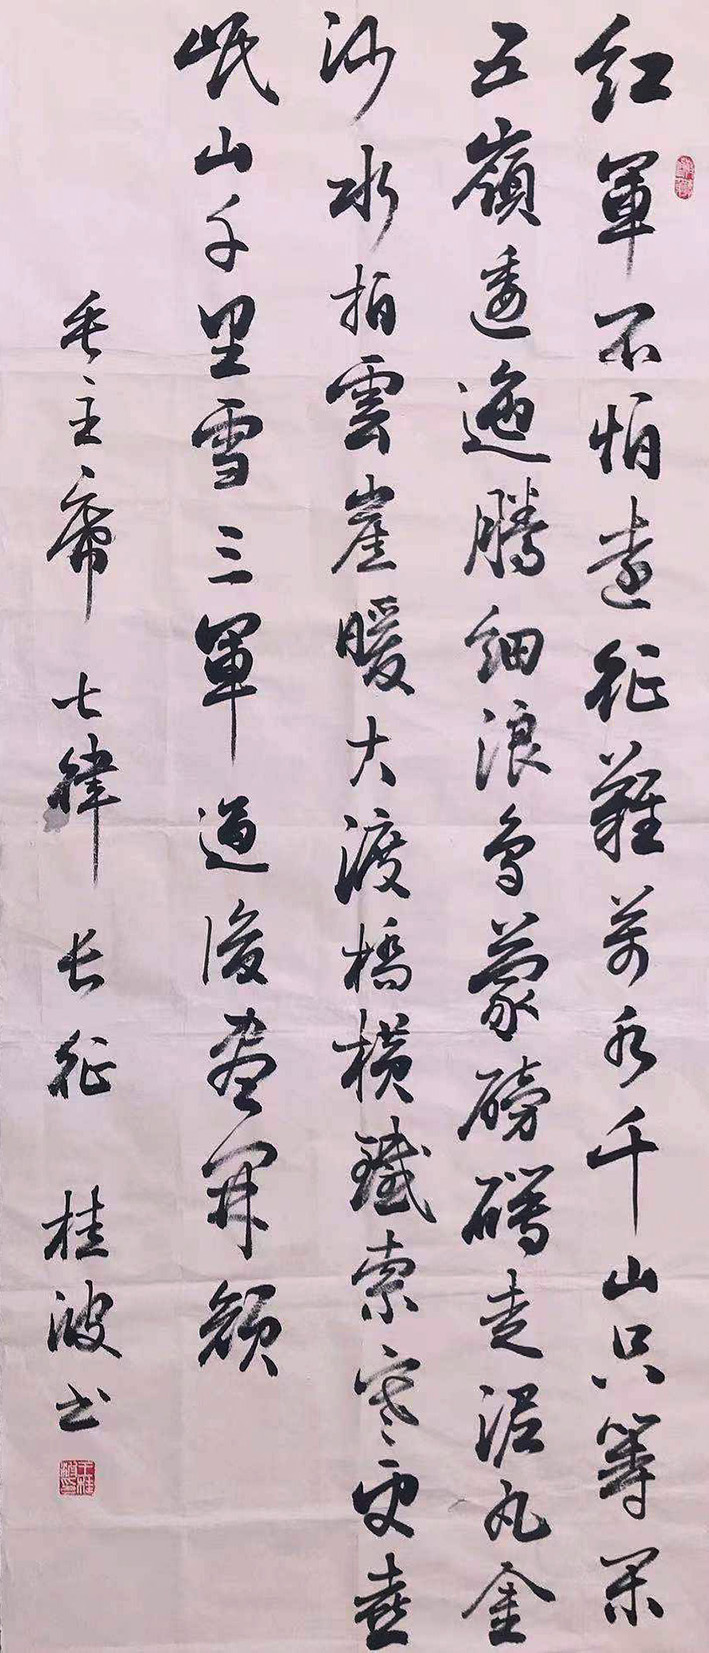 紅軍不怕遠征難萬水千山只等閑
五嶺逶迤騰細浪烏蒙磅礴走泥丸金
沙水拍雲崖暖大渡橋橫鐵索寒更喜
岷山千里雪三軍過後盡開顏
毛主席 七律 长征 桂波书